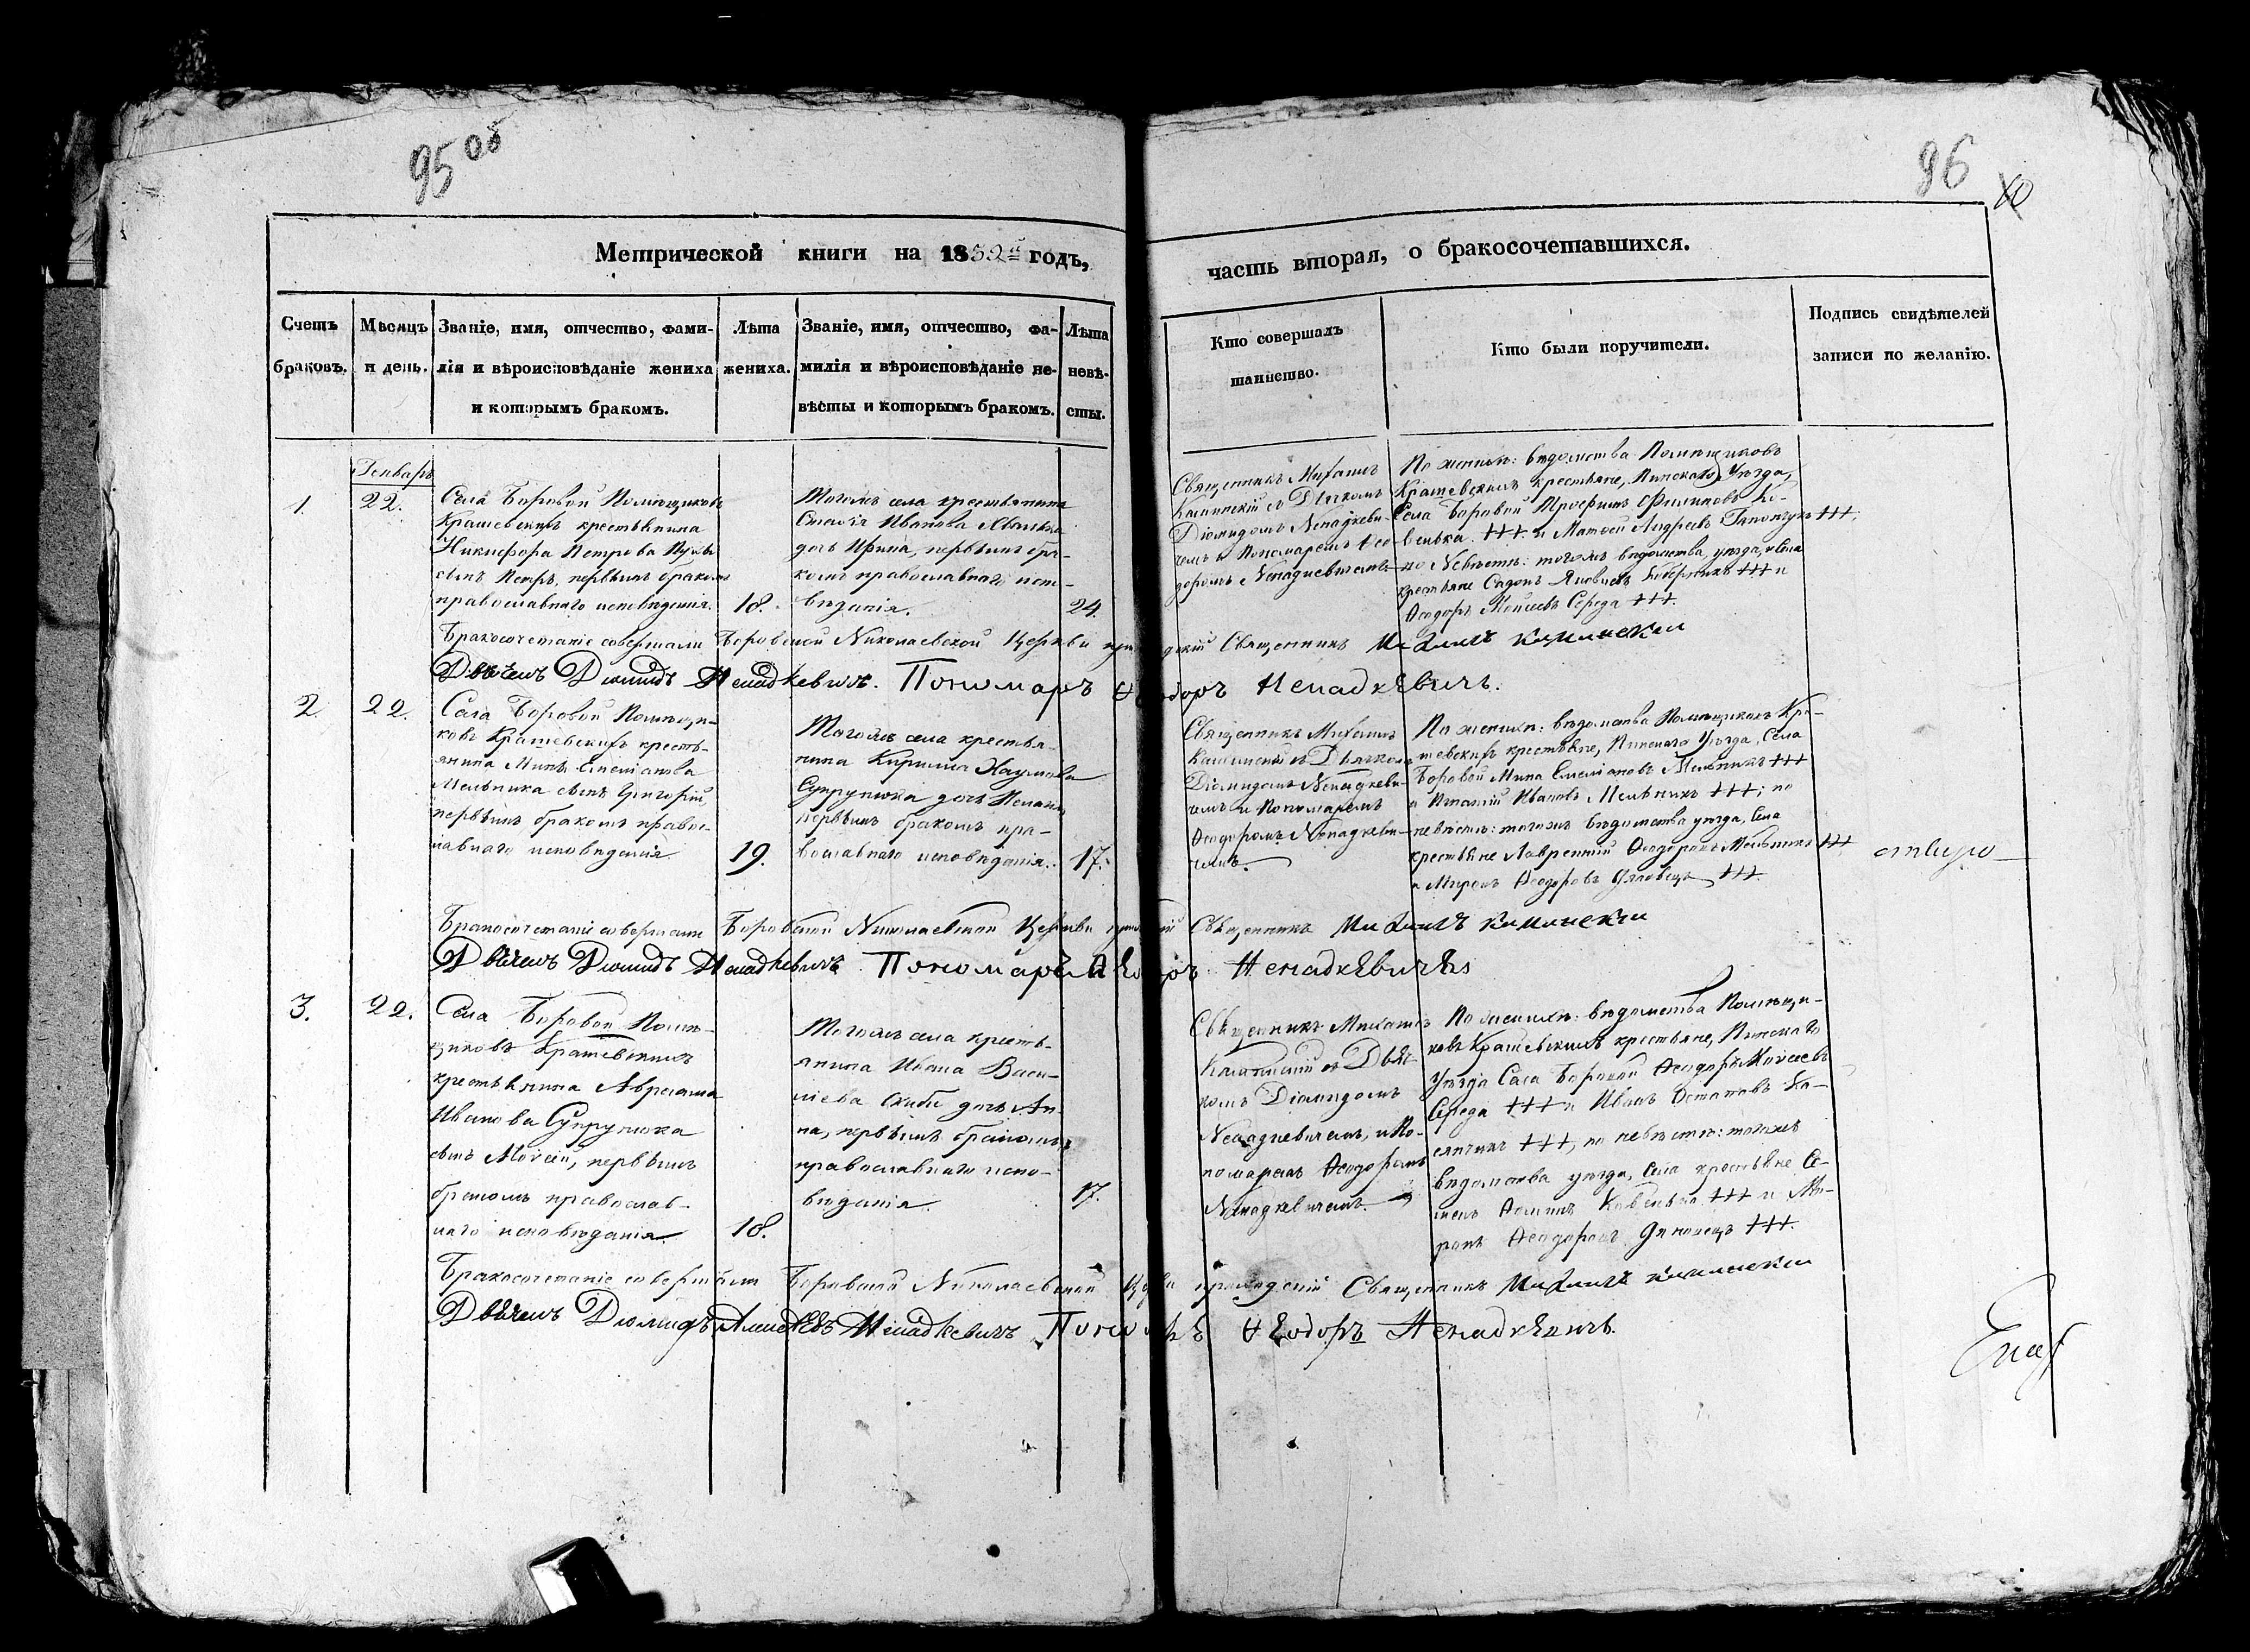 95 об
96
Метрической книги на 1839й годъ,
часть вторая, о бракосочетавшихся.
Счетъ браковъ.
Мѣсяцъ и день.
Званіе, имя, отчество, фами-
лія и вѣроисповѣданіе жениха
и которымъ бракомъ.
Лѣта
жениха.
Званіе, имя, отчество, фа-
милія и вѣроисповѣданіе не-
вѣсты и которымъ бракомъ.
Лѣта
невѣ-
сты.
Кто совершалъ
таинство.
Кто были поручители.
Подпись свидѣтелей
записи по желанію.
Генварь
1.
22.
Села Боровой Помѣщиковъ
Крашевскихъ крестьянина
Никифора Петрова
сынъ Петръ, первымъ бракомъ
православнаго исповѣданія.
18.
Тогожъ села крестьянина
Иванова
дочь Ирина, первымъ бра-
комъ православнаго испо-
вѣданія.
24.
Священникъ Михаилъ
Каминскій съ Дьячкомъ
Діомидомъ Ненадкеви-
чемъ и Пономаремъ Ѳео-
доромъ Ненадкевичемъ
По женихѣ: вѣдомства Помѣщиковъ
Крашевскихъ крестьяне, Пинскаго Уѣзда,
Села Боровой Трофимъ Филиповъ Ко-
велька +++ и Матвей Андреевъ Гапончукъ +++,
по Невѣстѣ: тогожъ вѣдомства, уѣзда, и Села
крестьяне Яковлевъ +++ и
Ѳеодоръ Моисеевъ Середа +++.
Бракосочетаніе совершали Боровской Николаевской Церкви приходскій Священникъ Михаилъ Каминскій
Дьячекъ Диомидъ Ненадкевичъ. Пономаръ Ѳеодоръ Ненадкевичъ.
2.
22.
Села Боровой Помѣщи-
ковъ Крашевскихъ кресть-
янина Мины Емельянова
Мельника сынъ Григорій,
первымъ бракомъ правос-
лавнаго исповѣданія
19.
Тогожъ села крестья-
нина Кирилла Наумова
Супрунюка дочь
первымъ бракомъ пра-
вославнаго исповѣданія.
17.
Священникъ Михаилъ
Каминскій съ Дьячкомъ
Діомидомъ Ненадкеви-
чемъ и Пономаремъ
Ѳеодоромъ Ненадкеви-
чемъ.
По женихѣ: вѣдомства Помѣщиковъ Кра-
шевскихъ крестьяне, Пинскаго Уѣзда, Села
Боровой Мина Емельяновъ Мельникъ +++
и Игнатій Ивановъ Мельникъ +++; по
невѣстѣ: тогожъ вѣдомства уѣзда, Села
крестьяне Лаврентій Ѳеодоровъ Мельникъ +++
и Миронъ Ѳеодоровъ +++.
Бракосочетаніе совершали Боровской Николаевской Церкви приходскій Священникъ Михаилъ Каминскій
Дьячекъ Диомидъ Ненадкевичъ Пономаръ Ѳеодоръ Ненадкевичъ
3.
22.
Села Боровой Помѣ-
щиковъ Крашевскихъ
крестьянина Авраама
Иванова Супрунюка
сынъ Моисей, первымъ
бракомъ православ-
наго исповѣданія
18.
Тогожъ села кресть-
янина Ивана Васи-
лева Скибы дочь Ан-
на, первымъ бракомъ,
православнаго испо-
вѣданія.
17.
Священникъ Михаилъ
Каминскій съ Дьяч-
комъ Діомидомъ
Ненадкевичемъ, и По-
номаремъ Ѳеодоромъ
Ненадкевичемъ.
По женихѣ: вѣдомства Помѣщи-
ковъ Крашевскихъ крестьяне, Пинскаго
Уѣзда Села Боровой Ѳеодоръ Моисеевъ
Середа +++ и Иванъ Остаповъ
+++, по невѣстѣ: тогожъ
вѣдомства уѣзда, Села крестьяне Се-
менъ Ковелька +++ и Ми-
ронъ Ѳеодоровъ +++.
Бракосочетаніе совершали Боровской Николаевской Церкви приходскій Священникъ Михаилъ Каминскій
Дьячекъ Диомидъ Ненадкевичъ Пономаръ Ѳеодоръ Ненадкевичъ.